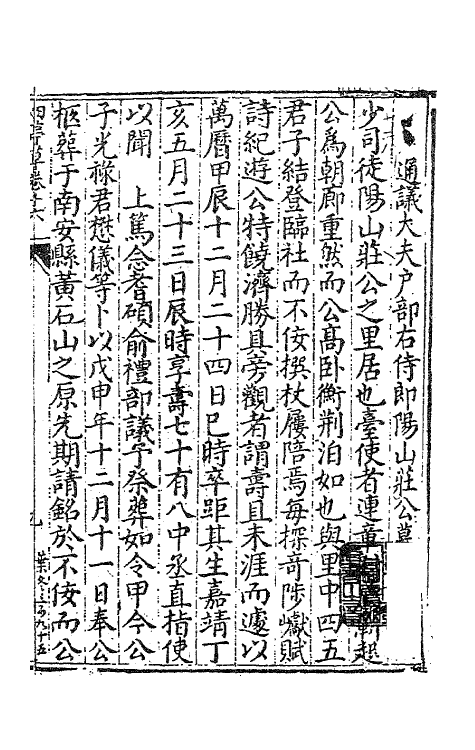 通議大夫户部右侍郎陽山莊公墓
少司徒陽山莊公之里居也臺使者連章
公爲朝廊重然而公髙卧衡荆泊如也與里中四五
君子結登臨社而不佞撰杖屨陪焉每探奇陟巘賦
詩紀遊公特饒濟勝具旁觀者謂壽且未涯而遽以
萬曆甲辰十二月二十四日巳時卒距其生嘉靖丁
亥五月二十三日辰時享壽七十有八中丞直指使
以聞　上篤念耆碩俞禮部議予祭葬如令甲今公
子光禄君懋儀等卜以戊申年十二月十一日奉公
柩葬于南安縣黄石山之原先期請銘於不佞而公